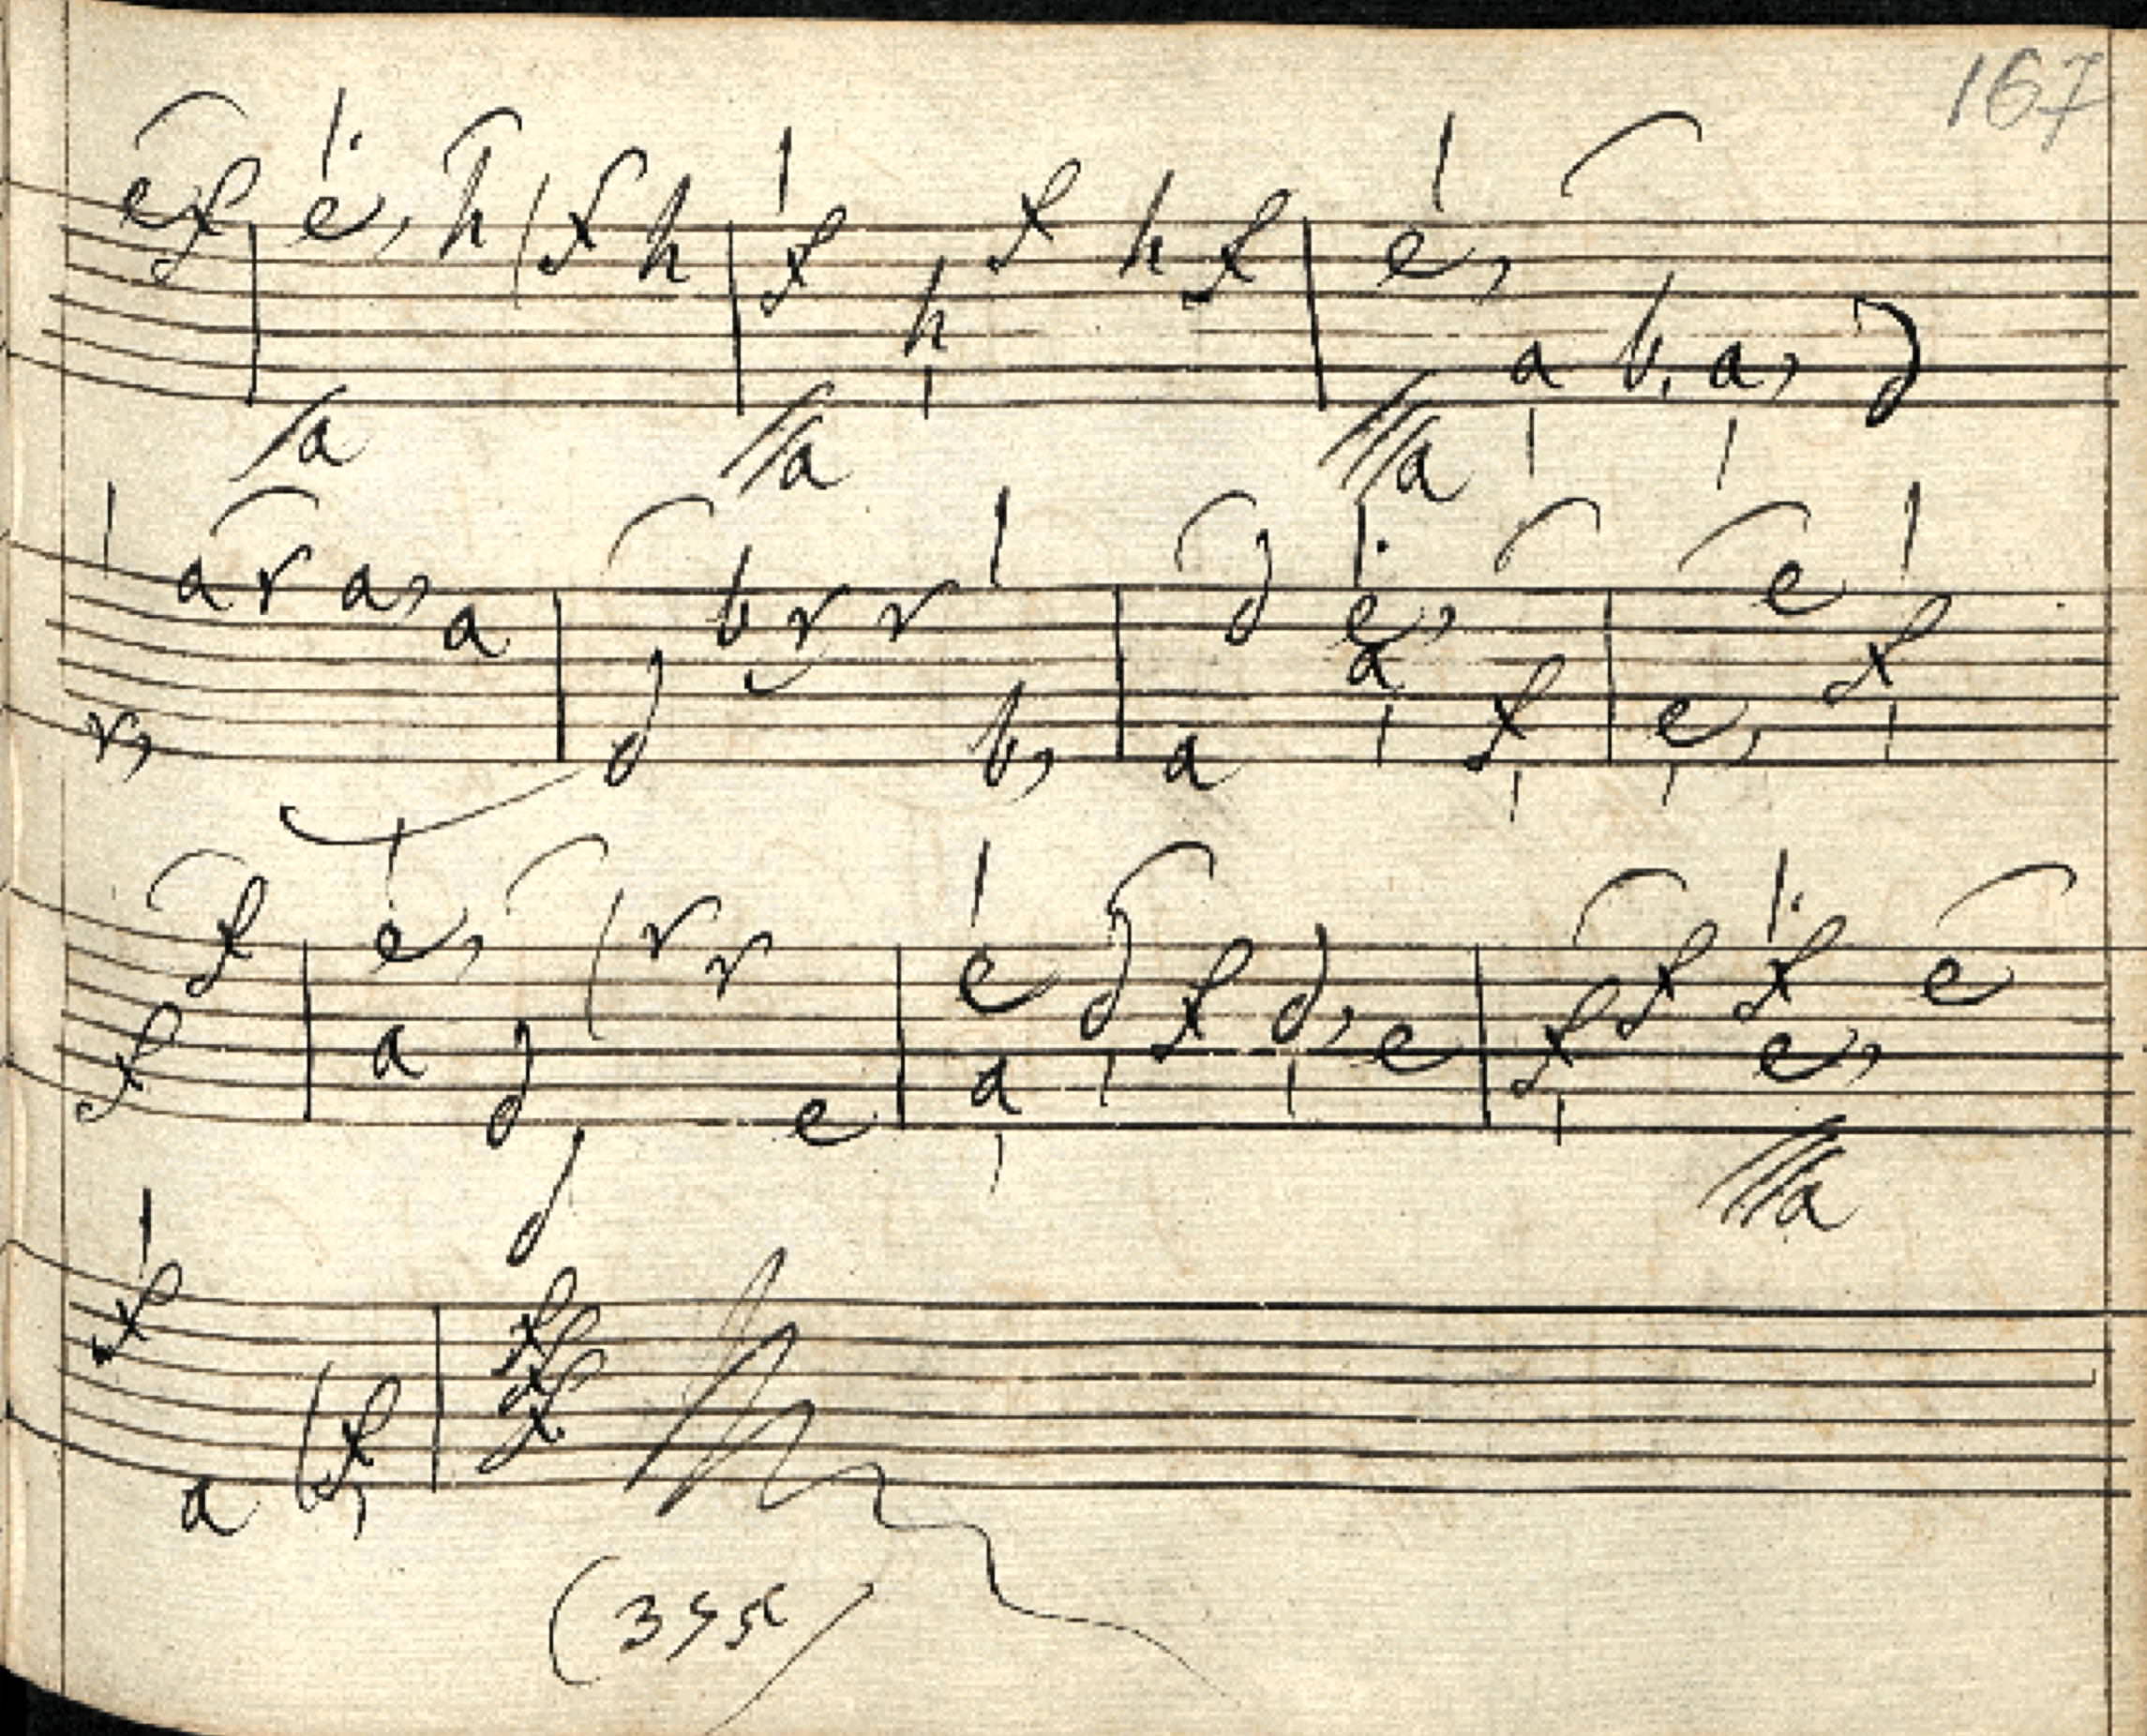 167
e f e, h f h f h f h f e, a b. a, d
/a //a ///a
a r a, a d b r r b, d e, a a f e e, f
r,
f e, r r e d f d, e f f f e
f a d e a e,
d ///a
f a f, f f f
(355)